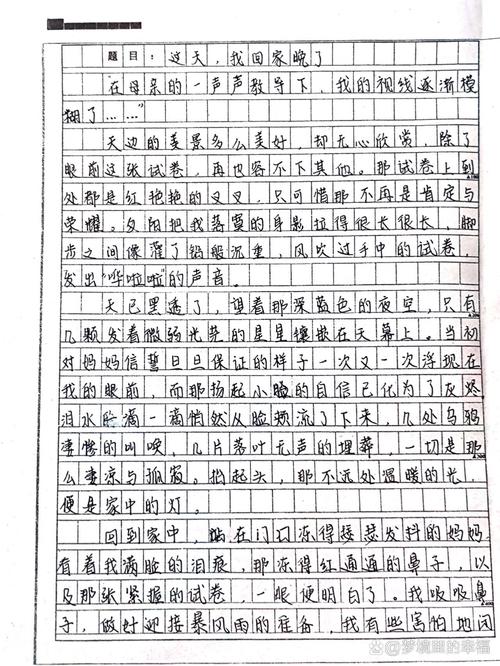 题目：这天，我回家晚了
在母亲的一声声教导下，我的视线逐渐模
糊了……"
天边的美景多么美好，却无心欣赏，除了
眼前这张试卷，再也容不下其他。那试卷上到
处都是红艳艳的叉叉，只可惜那不再是肯定与
荣耀。夕阳把我落寞的身影拉得很长很长，脚
步之间像灌了铅般沉重，风吹过手中的试卷，
发出"哗啦啦"的声音。
天已黑透了，望着那深蓝色的夜空，只有
几颗发着微弱光芒的星星镶嵌在天幕上。当初
对妈妈信誓旦旦保证的样子一次又一次浮现在
我的眼前，而那扬起小脸的自信已化为了灰烬
泪水一滴一滴悄然从脸颊流了下来，几处乌鸦
凄惨的叫唤，几片落叶无声的埋葬，一切是那
么凄凉与孤寂。抬起头，那不远处温暖的光，
便是家中的灯。
回到家中，站在门口冻得瑟瑟发抖的妈妈
看着我满脸的泪痕，那冻得红通通的鼻子，以
及那张紧握的试卷，一眼便明白了。我吸吸鼻
子，做好迎接暴风雨的准备，我有些害怕地闭
@梦境里的幸福